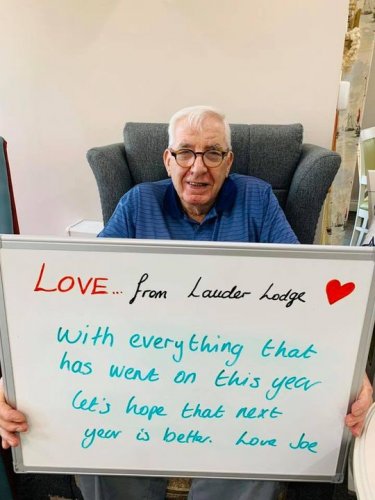 LOVE... from Lauder Lodge ♥
With everything that
has went on this year
let's hope that next
year is better. Love Joe